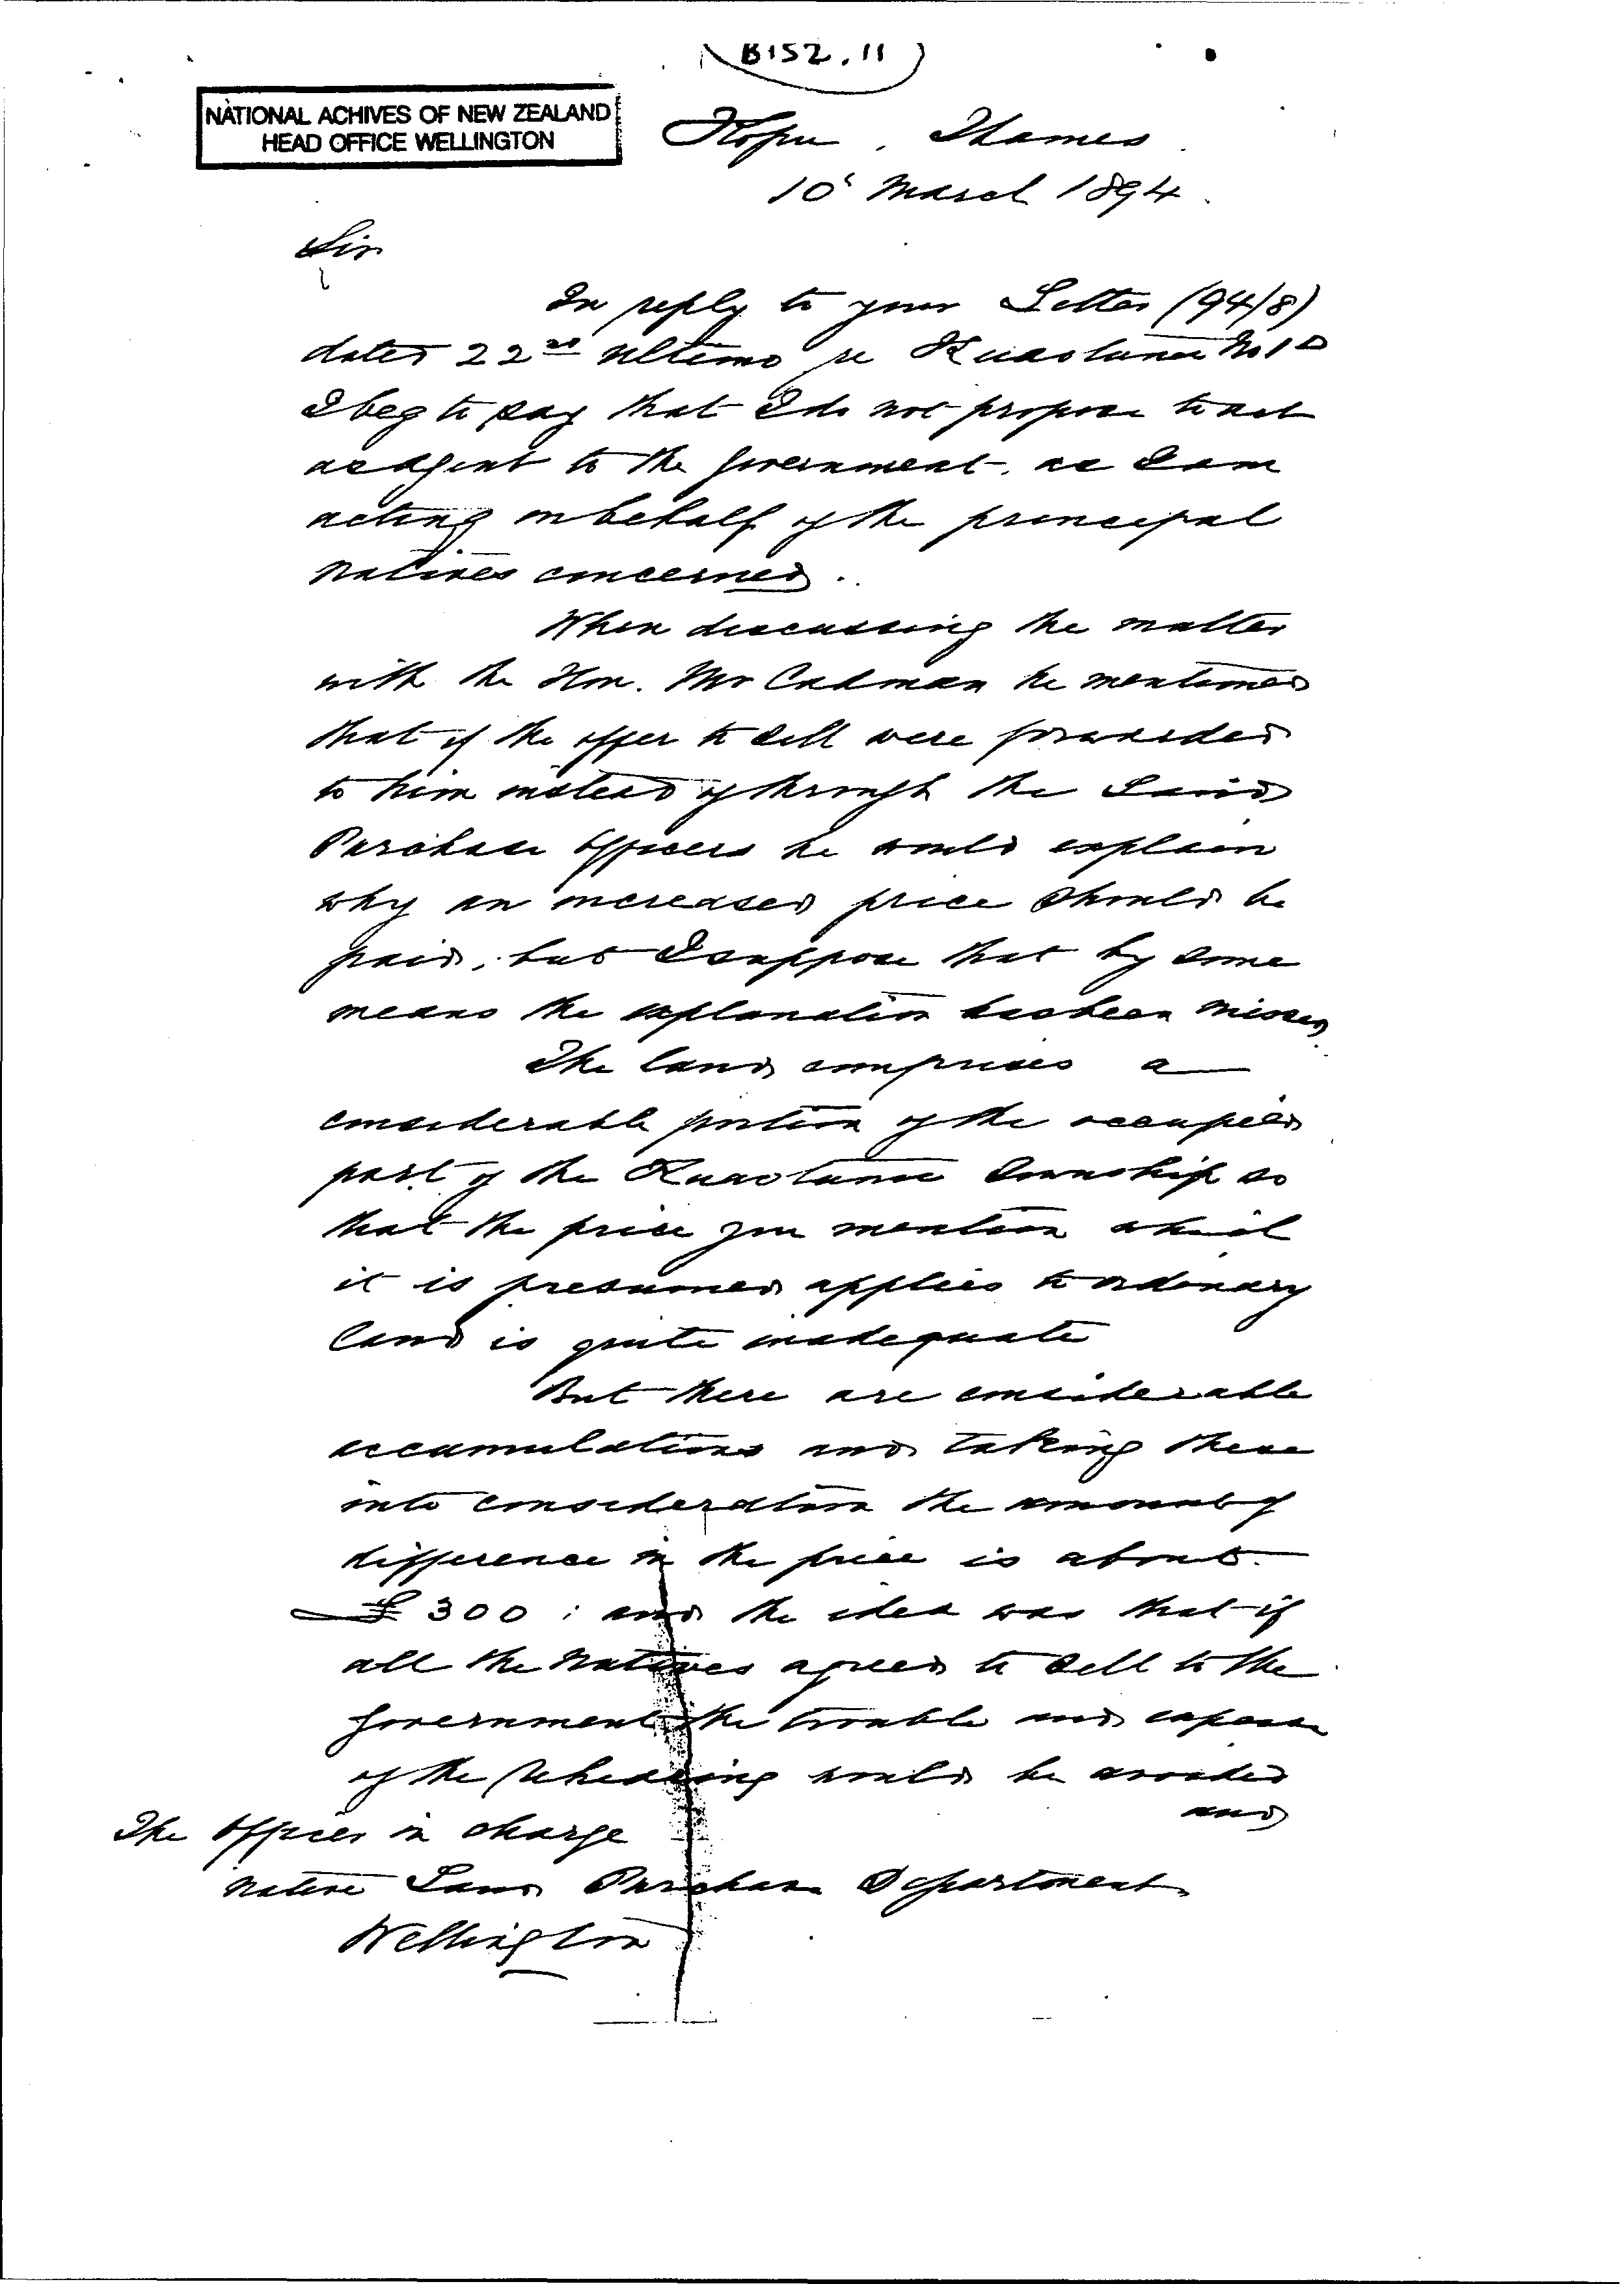 B152.11
NATIONAL ACHIVES OF NEW ZEALAND
HEAD OFFICE WELLINGTON
Kopu, Thames
10th March 1894.
Sir
In reply to your Letter (94/8)
dated 22nd ultimo re Kuaotunu No 1D
I beg to say that I do not propose to act
as agent to the Government, as I am
acting on behalf of the principal
Natives concerned.
When discussing the matter
with the Hon. Mr Cadman he mentioned
that if the offer to sell were forwarded
to him instead of through the Land
Purchase Officers he would explain
why an increased price should be
paid, but I suppose that by some
means the explanation has been missed
The land comprises a
considerable portion of the occupied
part of the Kuaotunu Township so
that the price you mention which
it is presumed applies to ordinary
land is quite inadequate
But there are considerable
accumulations and taking these
into consideration the amount of
difference in the price is about
£300; and the idea was that if
all the Natives agreed to sell to the
Government the trouble and expense
of the rehearing would be avoided
and
The Officer in charge
Native Land Purchase Department
Wellington